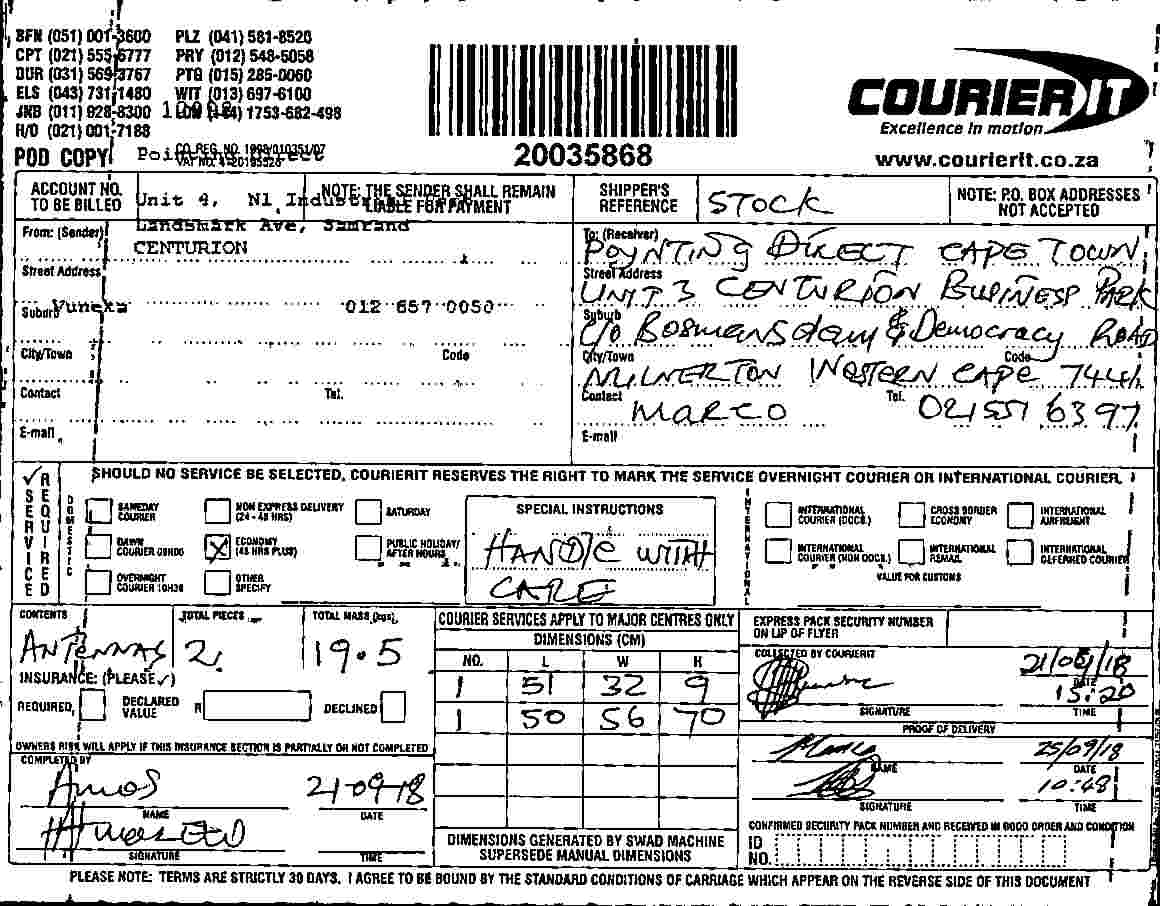 BFN (051) 001-3600 PLZ (041) 581-8520
CPT (021) 555-6777 PRY (012) 548-5058
DUR (031) 569-3767 PTG (015) 285-0060
ELS (043) 731-1480 WIT (013) 697-6100
JNB (011) 928-8300 1753-682-498
H/O (021) 001-7188
POD COPY
CO. REG. NO. 1998/010351/07
20035868
COURIER IT
Excellence in motion
www.courierit.co.za
ACCOUNT NO. TO BE BILLED
Unit 4, N1
NOTE: THE SENDER SHALL REMAIN LIABLE FOR PAYMENT
SHIPPER'S REFERENCE
STOCK
NOTE: P.O. BOX ADDRESSES NOT ACCEPTED
From: (Sender)
Landsmark Ave, Samrand
CENTURION
Street Address
Suburb
012 657 0050
City/Town Code
Contact Tel.
E-mail
To: (Receiver)
POYNTING DIRECT CAPE TOWN
Street Address
UNIT 3 CENTURION BUSINESS PARK
Suburb
C/O Bosmansdam & Democracy ROAD
City/Town Code
MILNERTON WESTERN CAPE 7441
Contact MARCO Tel. 021 551 6397
E-mail
SERVICE REQUIRED
SHOULD NO SERVICE BE SELECTED, COURIERIT RESERVES THE RIGHT TO MARK THE SERVICE OVERNIGHT COURIER OR INTERNATIONAL COURIER.
DOMESTIC
SAMEDAY COURIER
NON EXPRESS DELIVERY (24 - 48 HRS)
SATURDAY
DAWN COURIER 08H00
X ECONOMY (48 HRS PLUS)
PUBLIC HOLIDAY/ AFTER HOURS
OVERNIGHT COURIER 10H30
OTHER SPECIFY
SPECIAL INSTRUCTIONS
HANDLE WITH
CARE
INTERNATIONAL
INTERNATIONAL COURIER (DOCS.)
CROSS BORDER ECONOMY
INTERNATIONAL AIRFREIGHT
INTERNATIONAL COURIER (NON DOCS.)
INTERNATIONAL REMAIL
INTERNATIONAL DEFERRED COURIER
VALUE FOR CUSTOMS
CONTENTS
ANTENNAS
TOTAL PIECES
2
TOTAL MASS (kgs)
19.5
INSURANCE: (PLEASE ✓)
REQUIRED DECLARED VALUE R DECLINED
OWNERS RISK WILL APPLY IF THIS INSURANCE SECTION IS PARTIALLY OR NOT COMPLETED
COMPLETED BY
Amos 21-09-18
NAME DATE
SIGNATURE TIME
COURIER SERVICES APPLY TO MAJOR CENTRES ONLY
DIMENSIONS (CM)
NO. L W H
1 51 32 9
1 50 56 70
DIMENSIONS GENERATED BY SWAD MACHINE
SUPERSEDE MANUAL DIMENSIONS
EXPRESS PACK SECURITY NUMBER ON LIP OF FLYER
COLLECTED BY COURIERIT
21/09/18
DATE
15:20
SIGNATURE TIME
PROOF OF DELIVERY
Marco 25/09/18
NAME DATE
10:48
SIGNATURE TIME
CONFIRMED SECURITY PACK NUMBER AND RECEIVED IN GOOD ORDER AND CONDITION
ID NO.
PLEASE NOTE: TERMS ARE STRICTLY 30 DAYS. I AGREE TO BE BOUND BY THE STANDARD CONDITIONS OF CARRIAGE WHICH APPEAR ON THE REVERSE SIDE OF THIS DOCUMENT